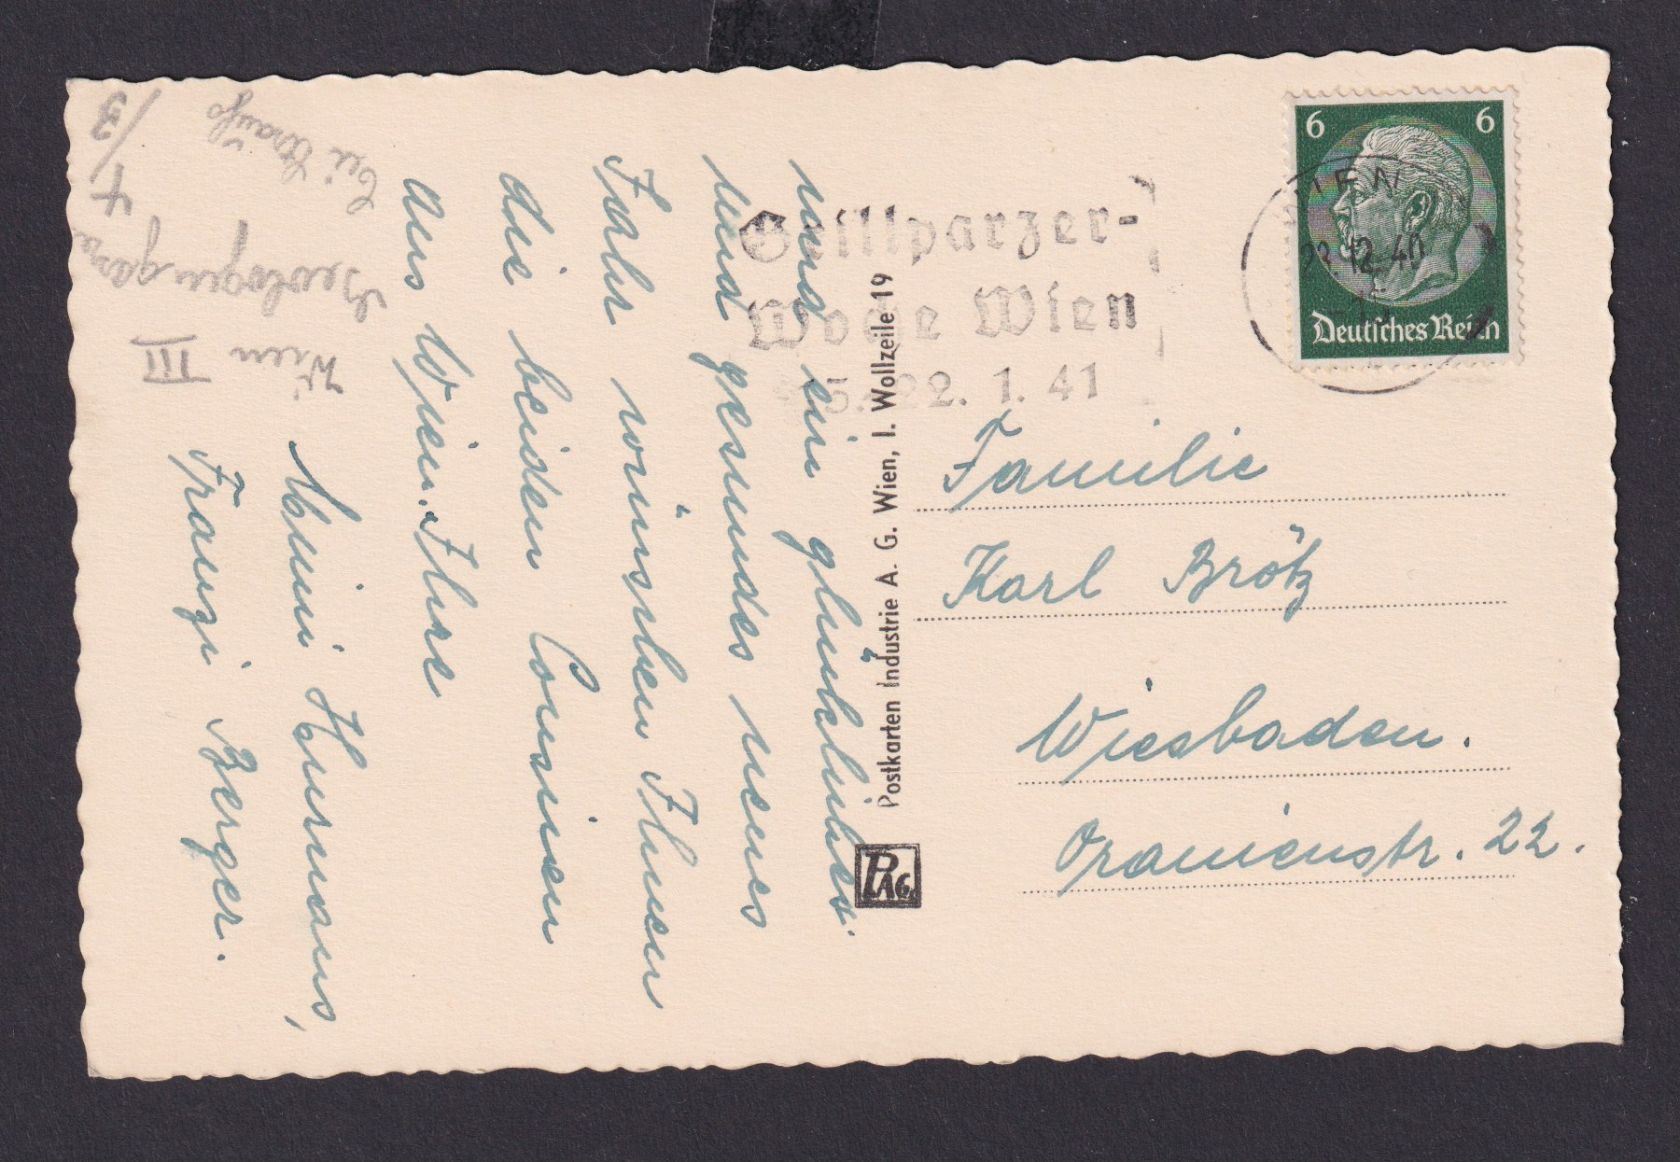 und ein glückliches
und gesundes neues
Jahr wünschen Ihnen
die beiden Cousinen
aus Wien. Ihre
Hermans,
Franzi Berger.
Wien III
4/3
bei Strauß
Grillparzer-
Woche Wien
15.-22. 1. 41
WIEN
23.12.40
6 6
Deutsches Reich
Postkarten Industrie A. G. Wien, I. Wollzeile 19
PAG.
Familie
Karl Brötz
Wiesbaden.
Oranienstr. 22.